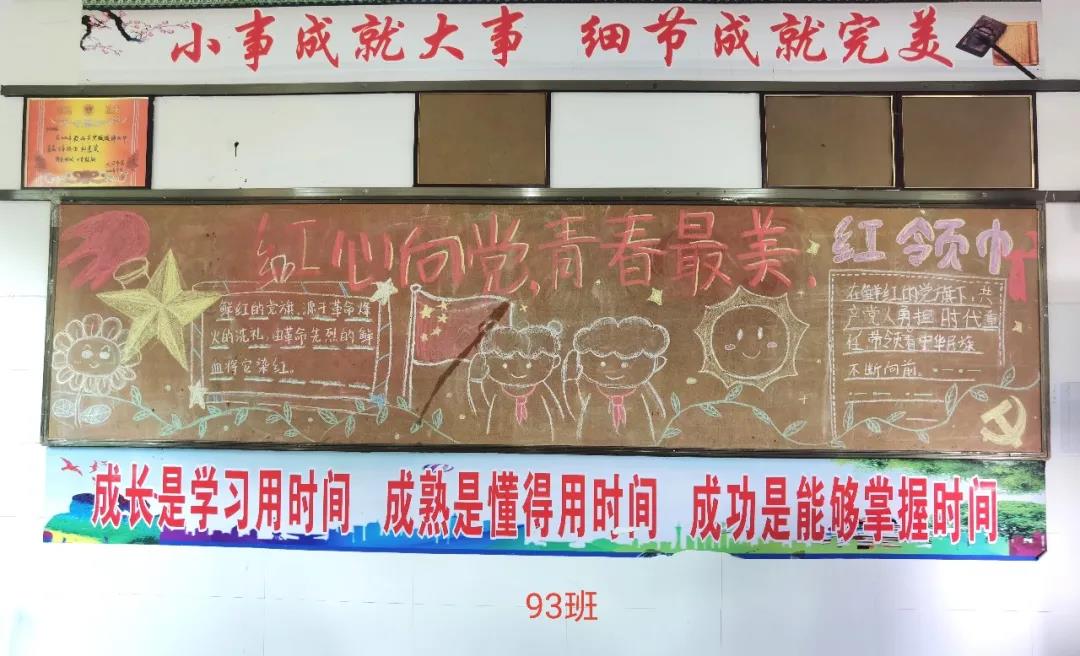 小事成就大事 细节成就完美
红心向党,青春最美.
红领巾
鲜红的党旗,源于革命烽
火的洗礼,由革命先烈的鲜
血将它染红。
在鲜红的党旗下,共
产党人勇担时代重
任,带领着中华民族
不断向前。
成长是学习用时间 成熟是懂得用时间 成功是能够掌握时间
93班